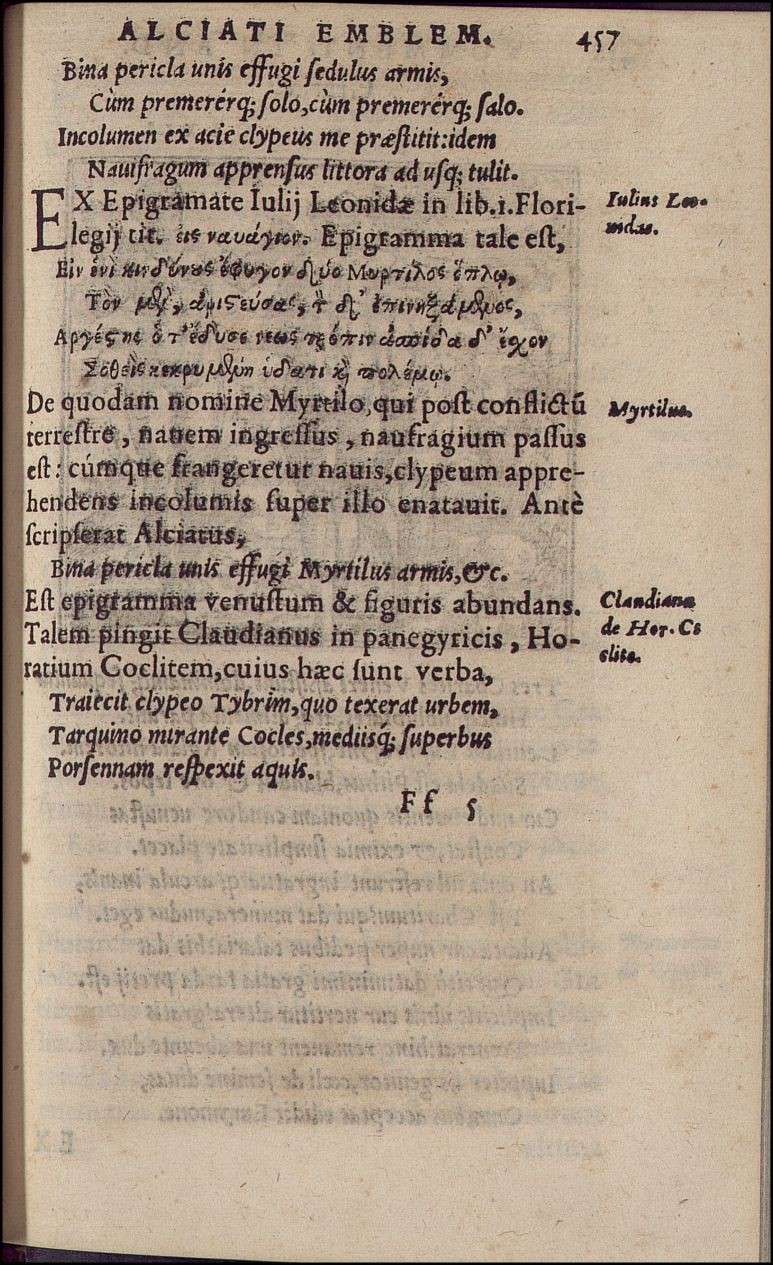 ALCIATI EMBLEM. 457
Bina pericla unis effugi ſedulus armis,
Cùm premerérq; ſolo, cùm premerérq; ſalo.
Incolumen ex acie clypeus me præſtitit: idem
Naufragum apprenſus littora ad uſq; tulit.
EX Epigramate Iulij Leonidæ in lib.1. Flori-
legij tit. εις ναυάγιον. Epigramma tale eſt,
Iulius Leo-
nidas.
Εἰν ἑνὶ κινδύνους ἔφυγον δύο Μυρτίλος ὅπλῳ,
Τὸν μὲν, ἀριστεύσας, τ δ' ἐπινηξάμενος,
Αργέστης ὅτ' ἔδυσε νεως τρόπιν ἀσπίδα δ' ἔχον
Σωθεὶς κεκριμένην ὕδατι καὶ πολέμῳ.
De quodam nomine Myrtilo, qui poſt conflictũ
terreſtrē, nauem ingreſſus, naufragium paſſus
eſt: cúmque frangeretur nauis, clypeum appre-
hendens incolumis ſuper illo enatauit. Antè
ſcripſerat Alciatus,
Myrtilus.
Bina pericla unis effugi Myrtilus armis, &c.
Eſt epigramma venuſtum & figuris abundans.
Talem pingit Claudianus in panegyricis, Ho-
ratium Coclitem, cuius hæc ſunt verba,
Claudianus
de Hor. Co
clite.
Traiecit clypeo Tybrim, quo texerat urbem,
Tarquino mirante Cocles, mediisq́; ſuperbus
Porſennam reſpexit aquis.
Ff 5